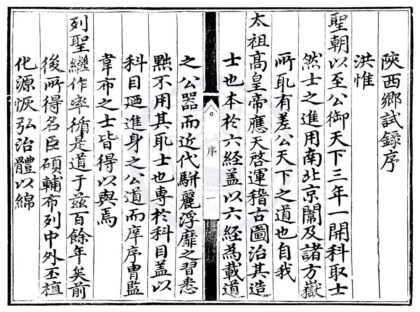 陝西鄉試錄序
洪惟
聖朝以至公御天下三年一開科取士
然士之進用南北京闈及諸方嶽
所取有差公天下之道也自我
太祖高皇帝應天啓運稽古圖治其造
士也本於六經蓋以六經為載道
序
一
之公器而近代駢麗浮靡之習悉
黜不用其取士也專於科目蓋以
科目廼進身之公道而庠序胄監
韋布之士皆得以與焉
列聖繼作率循是道于茲百餘年矣前
後所得名臣碩輔布列中外丕植
化源恢弘治體以綿